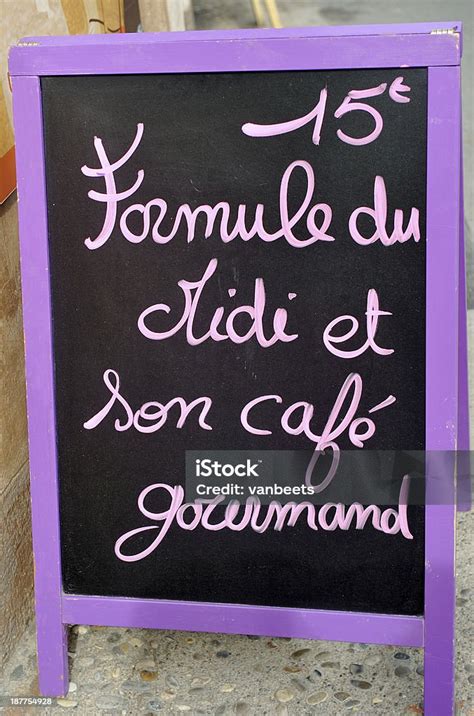 15€
Formule du
Midi et
son café
gourmand
iStock
Credit: vanbeets
187754928